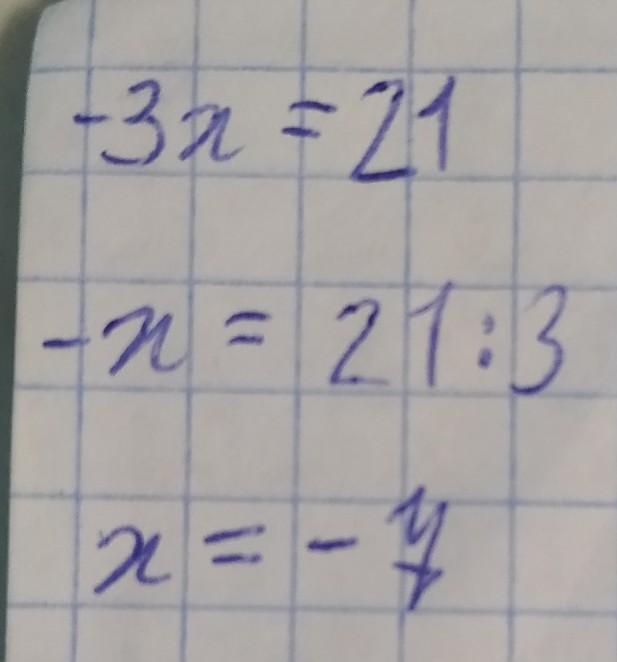 -3x = 21
-x = 21:3
x = -7